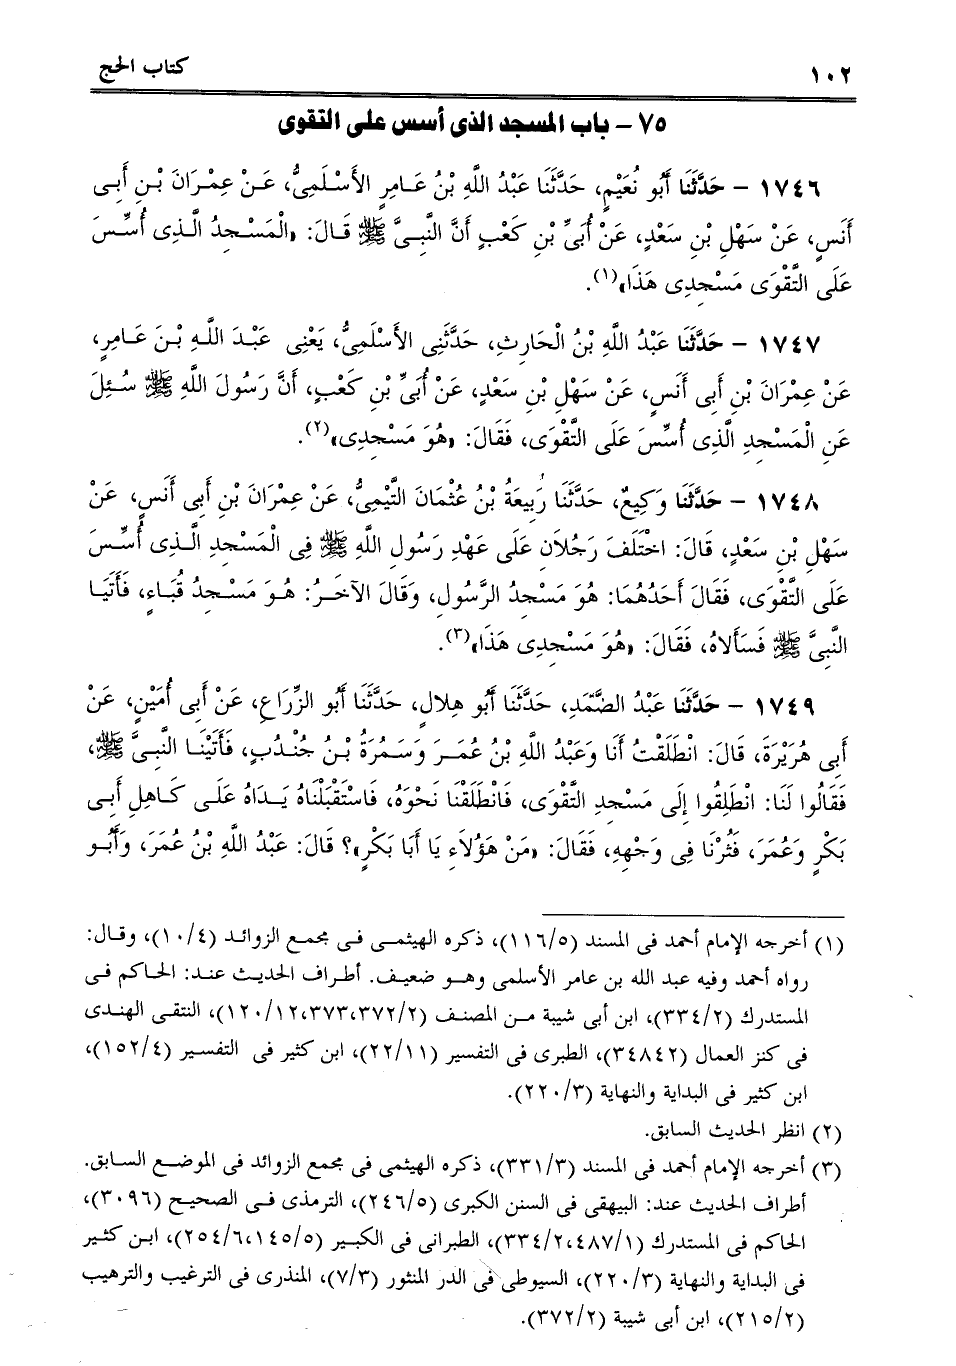 ١٠٢ كتاب الحج
٧٥ – باب المسجد الذى أسس على التقوى
١٧٤٦ – حَدَّثَنَا أَبُو نُعَيْمٍ، حَدَّثَنَا عَبْدُ اللَّهِ بْنُ عَامِرٍ الأَسْلَمِىُّ، عَنْ عِمْرَانَ بْنِ أَبِى
أَنَسٍ، عَنْ سَهْلِ بْنِ سَعْدٍ، عَنْ أُبَىِّ بْنِ كَعْبٍ أَنَّ النَّبِىَّ ﷺ قَالَ: «الْمَسْجِدُ الَّذِى أُسِّسَ
عَلَى التَّقْوَى مَسْجِدِى هَذَا»(١).
١٧٤٧ – حَدَّثَنَا عَبْدُ اللَّهِ بْنُ الْحَارِثِ، حَدَّثَنِى الأَسْلَمِىُّ، يَعْنِى عَبْدَ اللَّهِ بْنَ عَامِرٍ،
عَنْ عِمْرَانَ بْنِ أَبِى أَنَسٍ، عَنْ سَهْلِ بْنِ سَعْدٍ، عَنْ أُبَىِّ بْنِ كَعْبٍ، أَنَّ رَسُولَ اللَّهِ ﷺ سُئِلَ
عَنِ الْمَسْجِدِ الَّذِى أُسِّسَ عَلَى التَّقْوَى، فَقَالَ: «هُوَ مَسْجِدِى»(٢).
١٧٤٨ – حَدَّثَنَا وَكِيعٌ، حَدَّثَنَا رَبِيعَةُ بْنُ عُثْمَانَ التَّيْمِىُّ، عَنْ عِمْرَانَ بْنِ أَبِى أَنَسٍ، عَنْ
سَهْلِ بْنِ سَعْدٍ، قَالَ: اخْتَلَفَ رَجُلاَنِ عَلَى عَهْدِ رَسُولِ اللَّهِ ﷺ فِى الْمَسْجِدِ الَّذِى أُسِّسَ
عَلَى التَّقْوَى، فَقَالَ أَحَدُهُمَا: هُوَ مَسْجِدُ الرَّسُولِ، وَقَالَ الآخَرُ: هُوَ مَسْجِدُ قُبَاءٍ، فَأَتَيَا
النَّبِىَّ ﷺ فَسَأَلاَهُ، فَقَالَ: «هُوَ مَسْجِدِى هَذَا»(٣).
١٧٤٩ – حَدَّثَنَا عَبْدُ الصَّمَدِ، حَدَّثَنَا أَبُو هِلاَلٍ، حَدَّثَنَا أَبُو الزِّرَاعِ، عَنْ أَبِى أُمَيْنٍ، عَنْ
أَبِى هُرَيْرَةَ، قَالَ: انْطَلَقْتُ أَنَا وَعَبْدُ اللَّهِ بْنُ عُمَرَ وَسَمُرَةُ بْنُ جُنْدُبٍ، فَأَتَيْنَا النَّبِىَّ ﷺ،
فَقَالُوا لَنَا: انْطَلِقُوا إِلَى مَسْجِدِ التَّقْوَى، فَانْطَلَقْنَا نَحْوَهُ، فَاسْتَقْبَلْنَاهُ يَدَاهُ عَلَى كَاهِلِ أَبِى
بَكْرٍ وَعُمَرَ، فَثُرْنَا فِى وَجْهِهِ، فَقَالَ: «مَنْ هَؤُلاَءِ يَا أَبَا بَكْرٍ»؟ قَالَ: عَبْدُ اللَّهِ بْنُ عُمَرَ، وَأَبُو
(١) أخرجه الإمام أحمد فى المسند (١١٦/٥)، ذكره الهيثمى فى مجمع الزوائد (١٠/٤)، وقال:
رواه أحمد وفيه عبد الله بن عامر الأسلمى وهو ضعيف. أطراف الحديث عند: الحاكم فى
المستدرك (٣٣٤/٢)، ابن أبى شيبة من المصنف (٣٧٢/٢،٣٧٣،١٢٠/١٢)، النتقى الهندى
فى كنز العمال (٣٤٨٤٢)، الطبرى فى التفسير (٢٢/١١)، ابن كثير فى التفسير (١٥٢/٤)،
ابن كثير فى البداية والنهاية (٢٢٠/٣).
(٢) انظر الحديث السابق.
(٣) أخرجه الإمام أحمد فى المسند (٣٣١/٣)، ذكره الهيثمى فى مجمع الزوائد فى الموضع السابق.
أطراف الحديث عند: البيهقى فى السنن الكبرى (٢٤٦/٥)، الترمذى فى الصحيح (٣٠٩٦)،
الحاكم فى المستدرك (٤٨٧/١،٣٣٤/٢)، الطبرانى فى الكبير (١٤٥/٥،٢٥٤/٦)، ابن كثير
فى البداية والنهاية (٢٢٠/٣)، السيوطى فى الدر المنثور (٧/٣)، المنذرى فى الترغيب والترهيب
(٢١٥/٢)، ابن أبى شيبة (٣٧٢/٢).